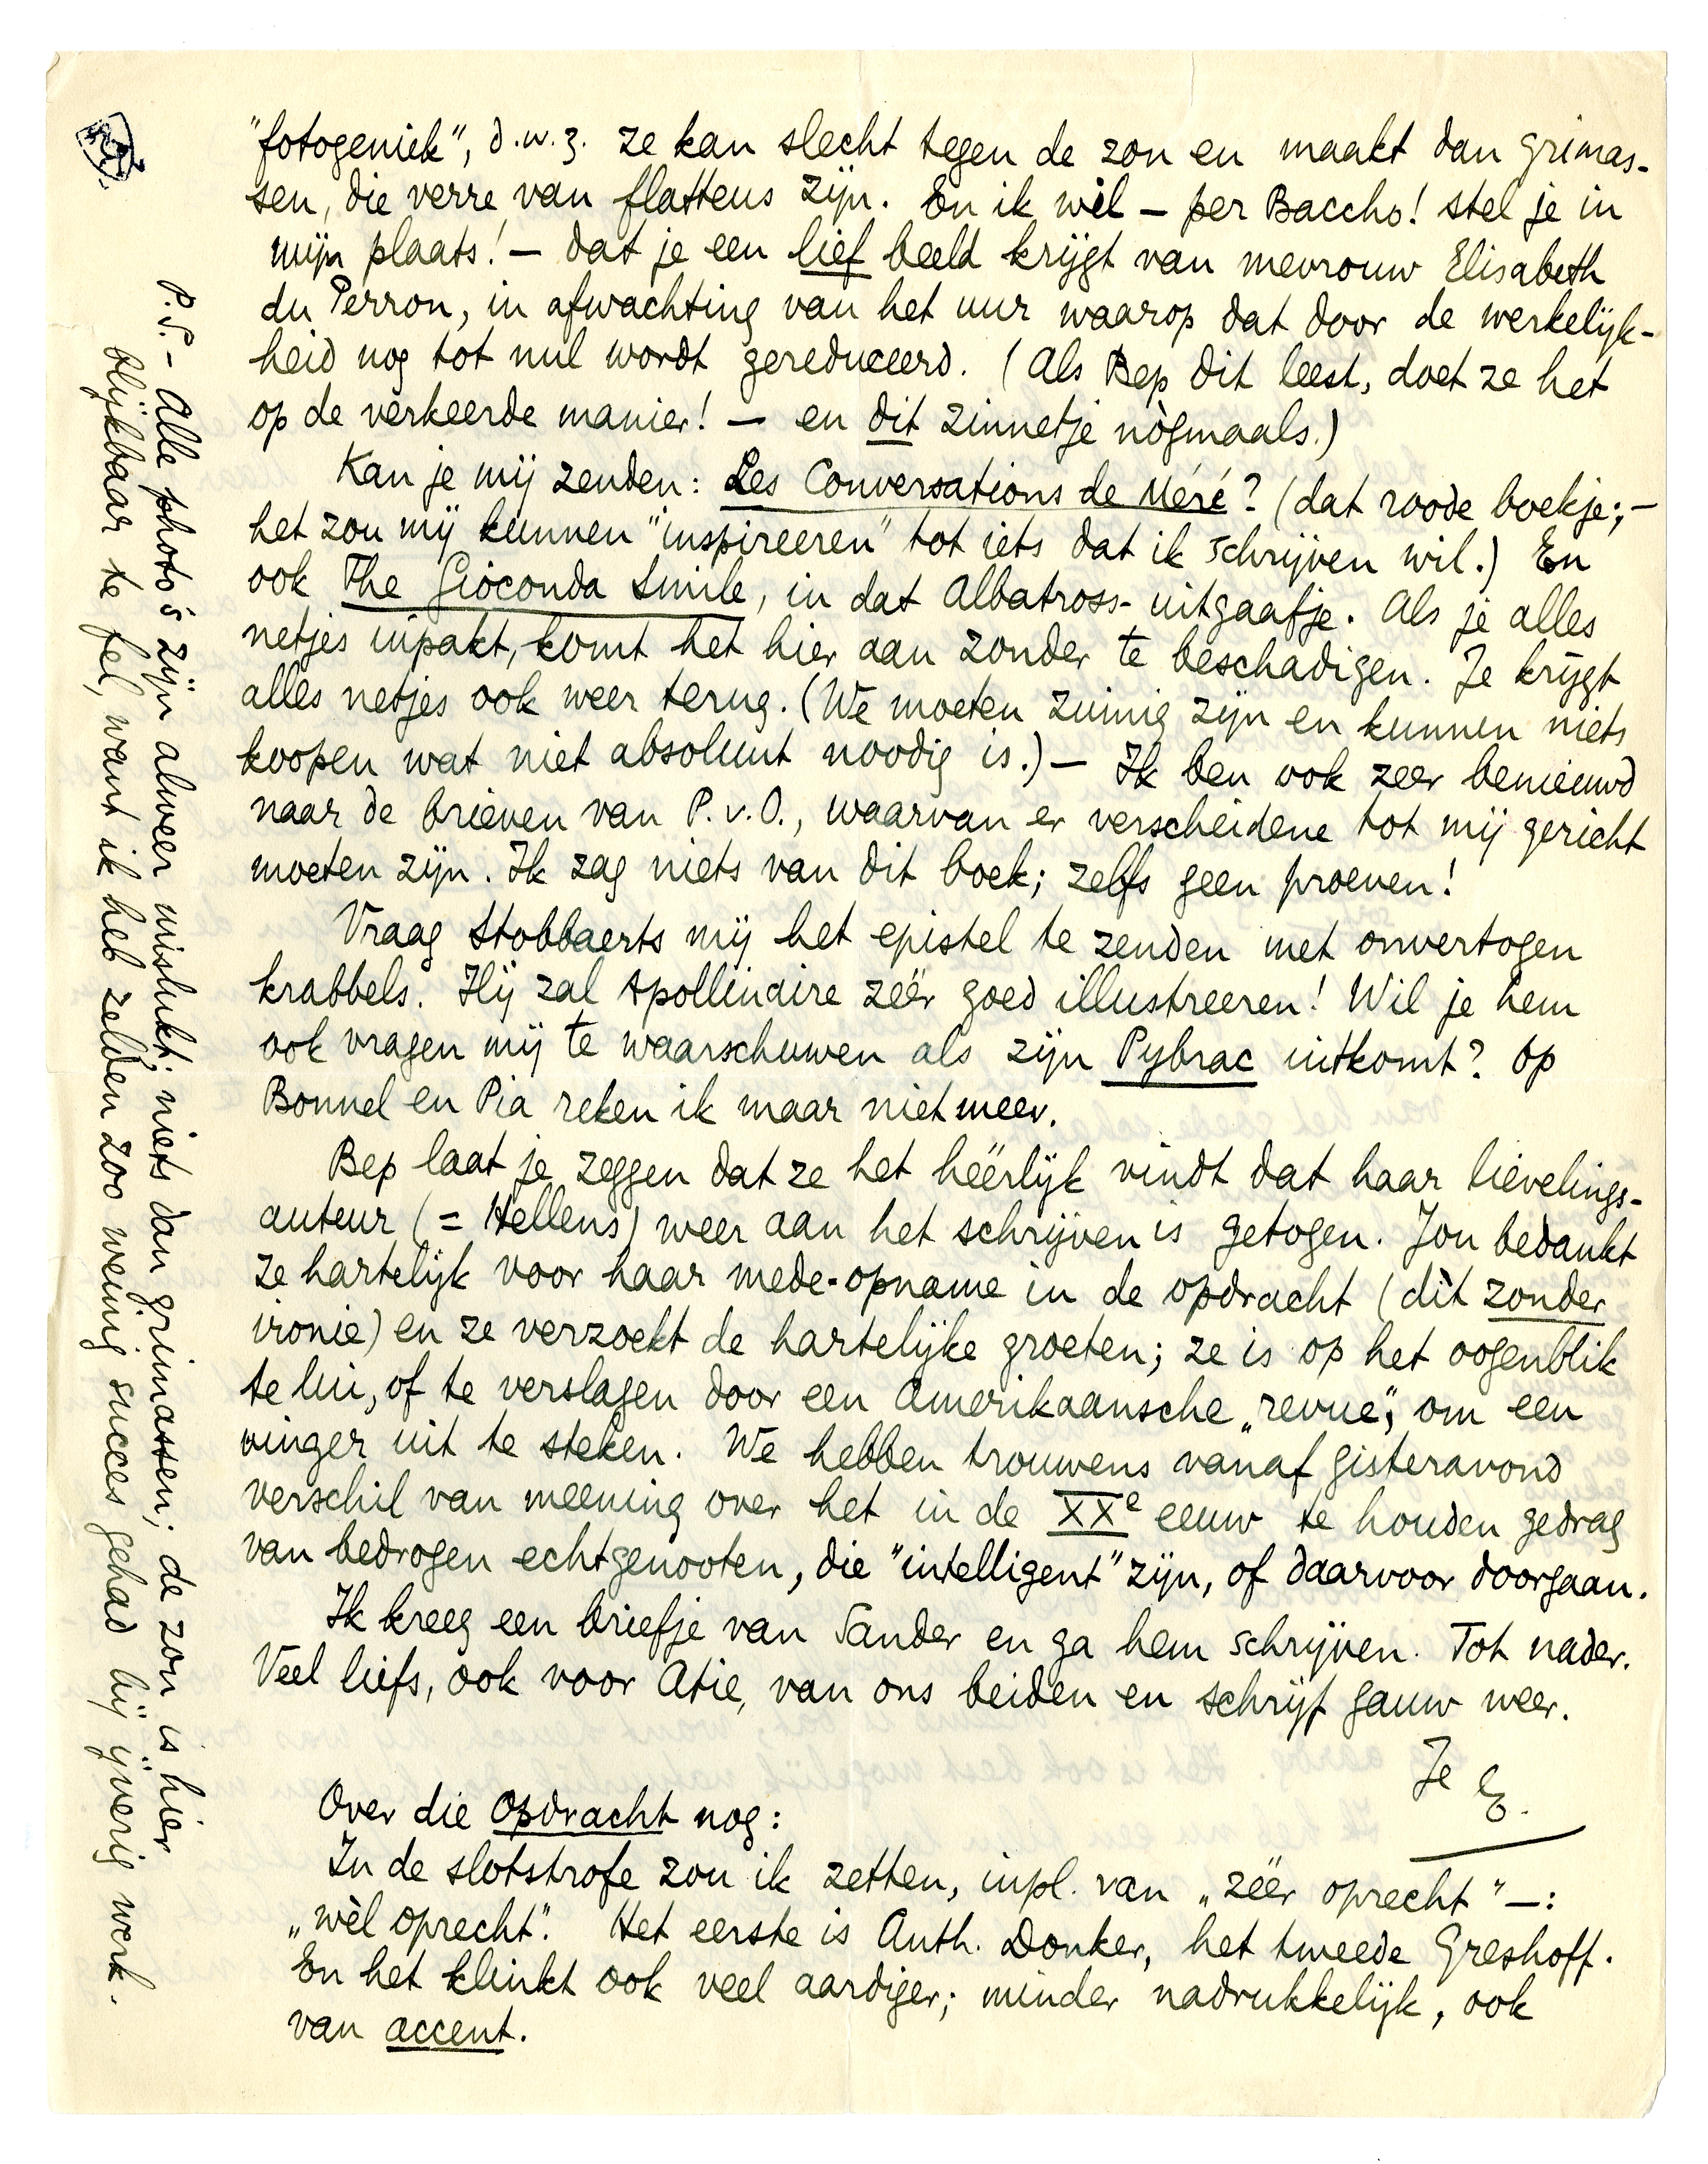 "fotogeniek", d.w.z. ze kan slecht tegen de zon en maakt dan grimas-
sen, die verre van flatteus zijn. En ik wil – per Baccho! stel je in
mijn plaats! – dat je een lief beeld krijgt van mevrouw Elisabeth
du Perron, in afwachting van het uur waarop dat door de werkelijk-
heid nog tot nul wordt gereduceerd. (Als Bep dit leest, doet ze het
op de verkeerde manier! – en dit zinnetje nògmaals.)
Kan je mij zenden: Les Conversations de Méré? (dat roode boekje; –
het zou mij kunnen "inspireeren" tot iets dat ik schrijven wil.) En
ook The Gioconda Smile, in dat Albatross-uitgaafje. Als je alles
netjes inpakt, komt het hier aan zonder te beschadigen. Je krijgt
alles netjes ook weer terug. (We moeten zuinig zijn en kunnen niets
koopen wat niet absoluut noodig is.) – Ik ben ook zeer benieuwd
naar de brieven van P.v.O., waarvan er verscheidene tot mij gericht
moeten zijn. Ik zag niets van dit boek; zelfs geen proeven!
Vraag Stobbaerts mij het epistel te zenden met onvertogen
krabbels. Hij zal Apollinaire zéér goed illustreeren! Wil je hem
ook vragen mij te waarschuwen als zijn Pybrac uitkomt? Op
Bonnel en Pia reken ik maar niet meer.
Bep laat je zeggen dat ze het héérlijk vindt dat haar lievelings-
auteur (= Hellens) weer aan het schrijven is getogen. Jou bedankt
ze hartelijk voor haar mede-opname in de opdracht (dìt zonder
ironie) en ze verzoekt de hartelijke groeten; ze is op het oogenblik
te lui, of te verslagen door een Amerikaansche „revue", om een
vinger uit te steken. We hebben trouwens vanaf gisteravond
verschil van meening over het in de XXe eeuw te houden gedrag
van bedrogen echtgenooten, die "intelligent" zijn, of daarvoor doorgaan.
Ik kreeg een briefje van Sander en ga hem schrijven. Tot nader.
Veel liefs, ook voor Atie, van ons beiden en schrijf gauw weer.
Je E.
Over die Opdracht nog:
In de slotstrofe zou ik zetten, inpl. van „zéér oprecht" – :
„wèl oprecht". Het eerste is Anth. Donker, het tweede Greshoff.
En het klinkt ook veel aardiger; minder nadrukkelijk, ook
van accent.
P.S. – Alle photo's zijn alweer mislukt; niets dan grimassen; de zon is hier
blijkbaar te fel, want ik heb zelden zoo weinig succes gehad bij ijverig werk.